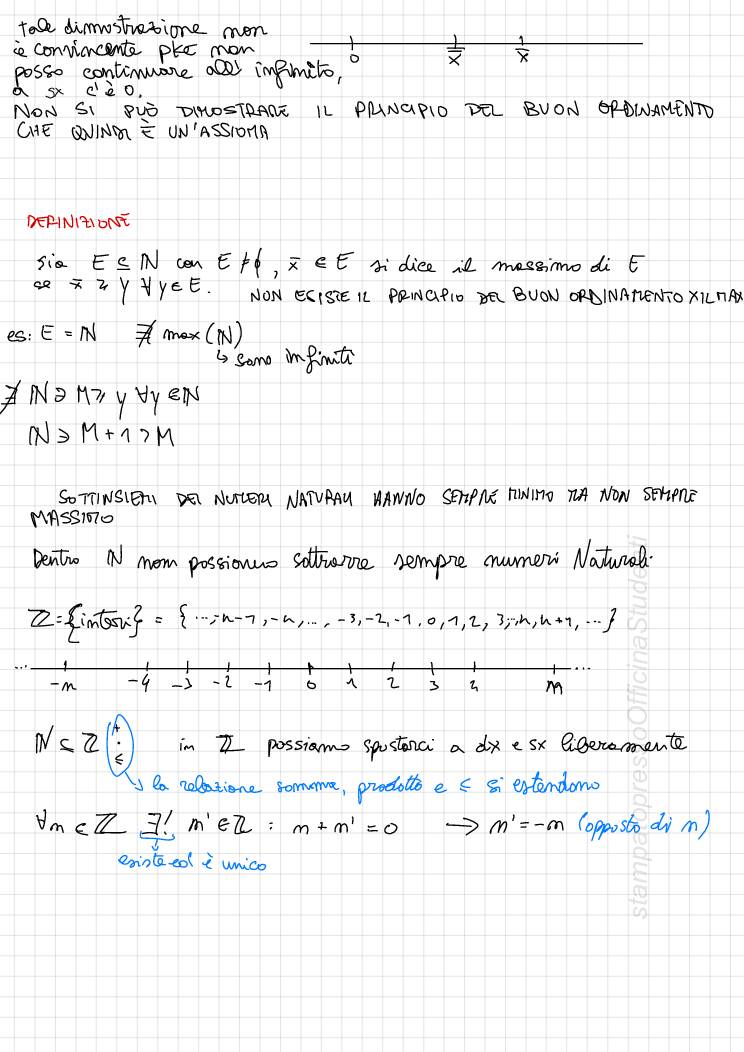 tale dimostrazione non
è convincente pke non
posso continuare all' infinito,
a sx c'è 0.
0 x̿ x̄
NON SI PUÒ DIMOSTRARE IL PRINCIPIO DEL BUON ORDINAMENTO
CHE QUINDI È UN'ASSIOMA
DEFINIZIONE
sia E ⊆ ℕ con E ≠ ∅, x̄ ∈ E si dice il massimo di E
se x̄ ≥ y ∀y∈E. NON ESISTE IL PRINCIPIO DEL BUON ORDINAMENTO X IL MAX
es: E = ℕ ∄ max(ℕ)
↳ sono infiniti
∄ ℕ ∋ M ≥ y ∀y ∈ ℕ
ℕ ∋ M+1 > M
SOTTINSIEMI DEI NUMERI NATURALI HANNO SEMPRE MINIMO MA NON SEMPRE
MASSIMO
Dentro ℕ non possiamo sottrarre sempre numeri Naturali.
ℤ = {interi} = { ..., -n-1, -n, ..., -3, -2, -1, 0, 1, 2, 3, .., n, n+1, ... }
... -n -4 -3 -2 -1 0 1 2 3 4 m ...
ℕ ⊆ ℤ (+ · ≤) in ℤ possiamo spostarci a dx e sx liberamente
↳ la relazione somma, prodotto e ≤ si estendono
∀n ∈ ℤ ∃! n' ∈ ℤ : n + n' = 0 → n' = -n (opposto di n)
esiste ed è unico
stampato presso OfficinaStudenti